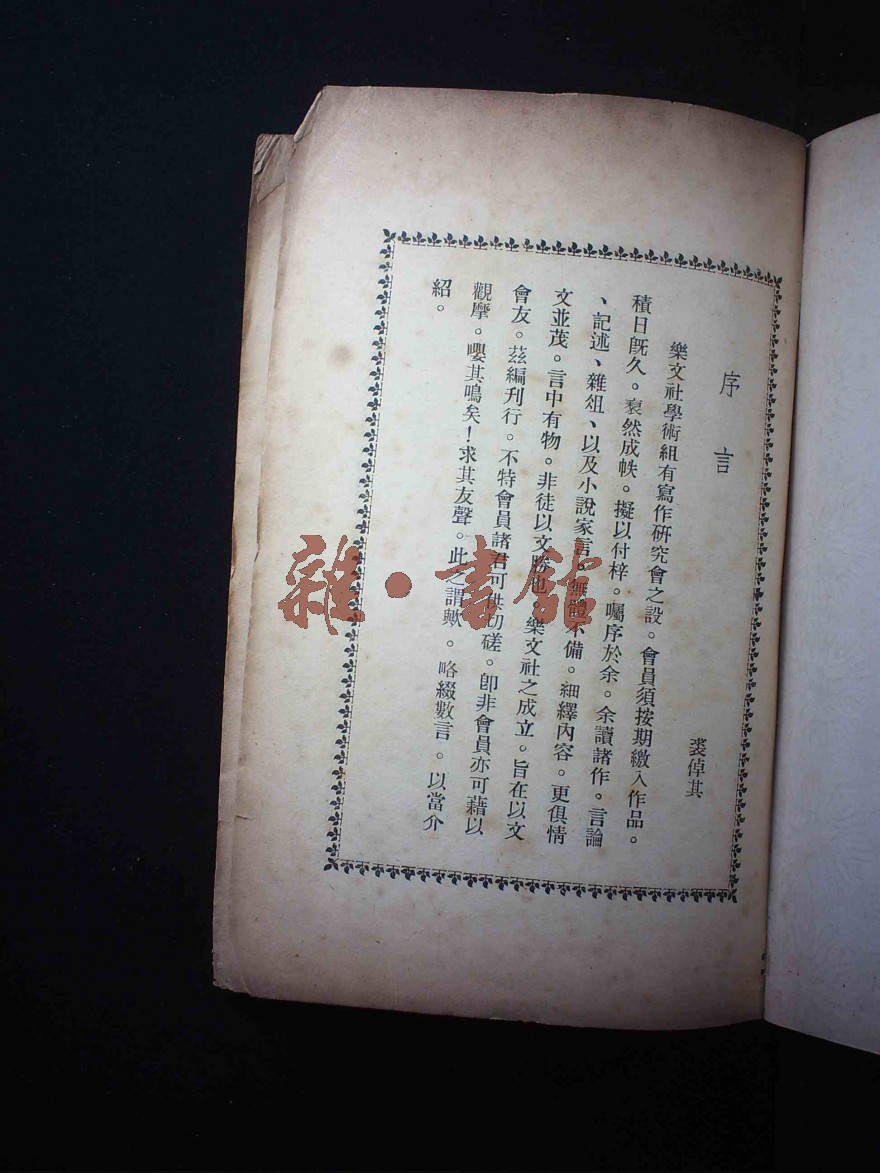 序言
裘倬其
樂文社學術組有寫作研究會之設。會員須按期繳入作品。
積日旣久。裒然成帙。擬以付梓。囑序於余。余讀諸作。言論
、記述、雜俎、以及小說家言。無體不備。細繹內容。更俱情
文並茂。言中有物。非徒以文勝也。樂文社之成立。旨在以文
會友。茲編刋行。不特會員諸君可供切磋。卽非會員亦可藉以
觀摩。嚶其鳴矣！求其友聲。此之謂歟。略綴數言。以當介
紹。
雜·書館